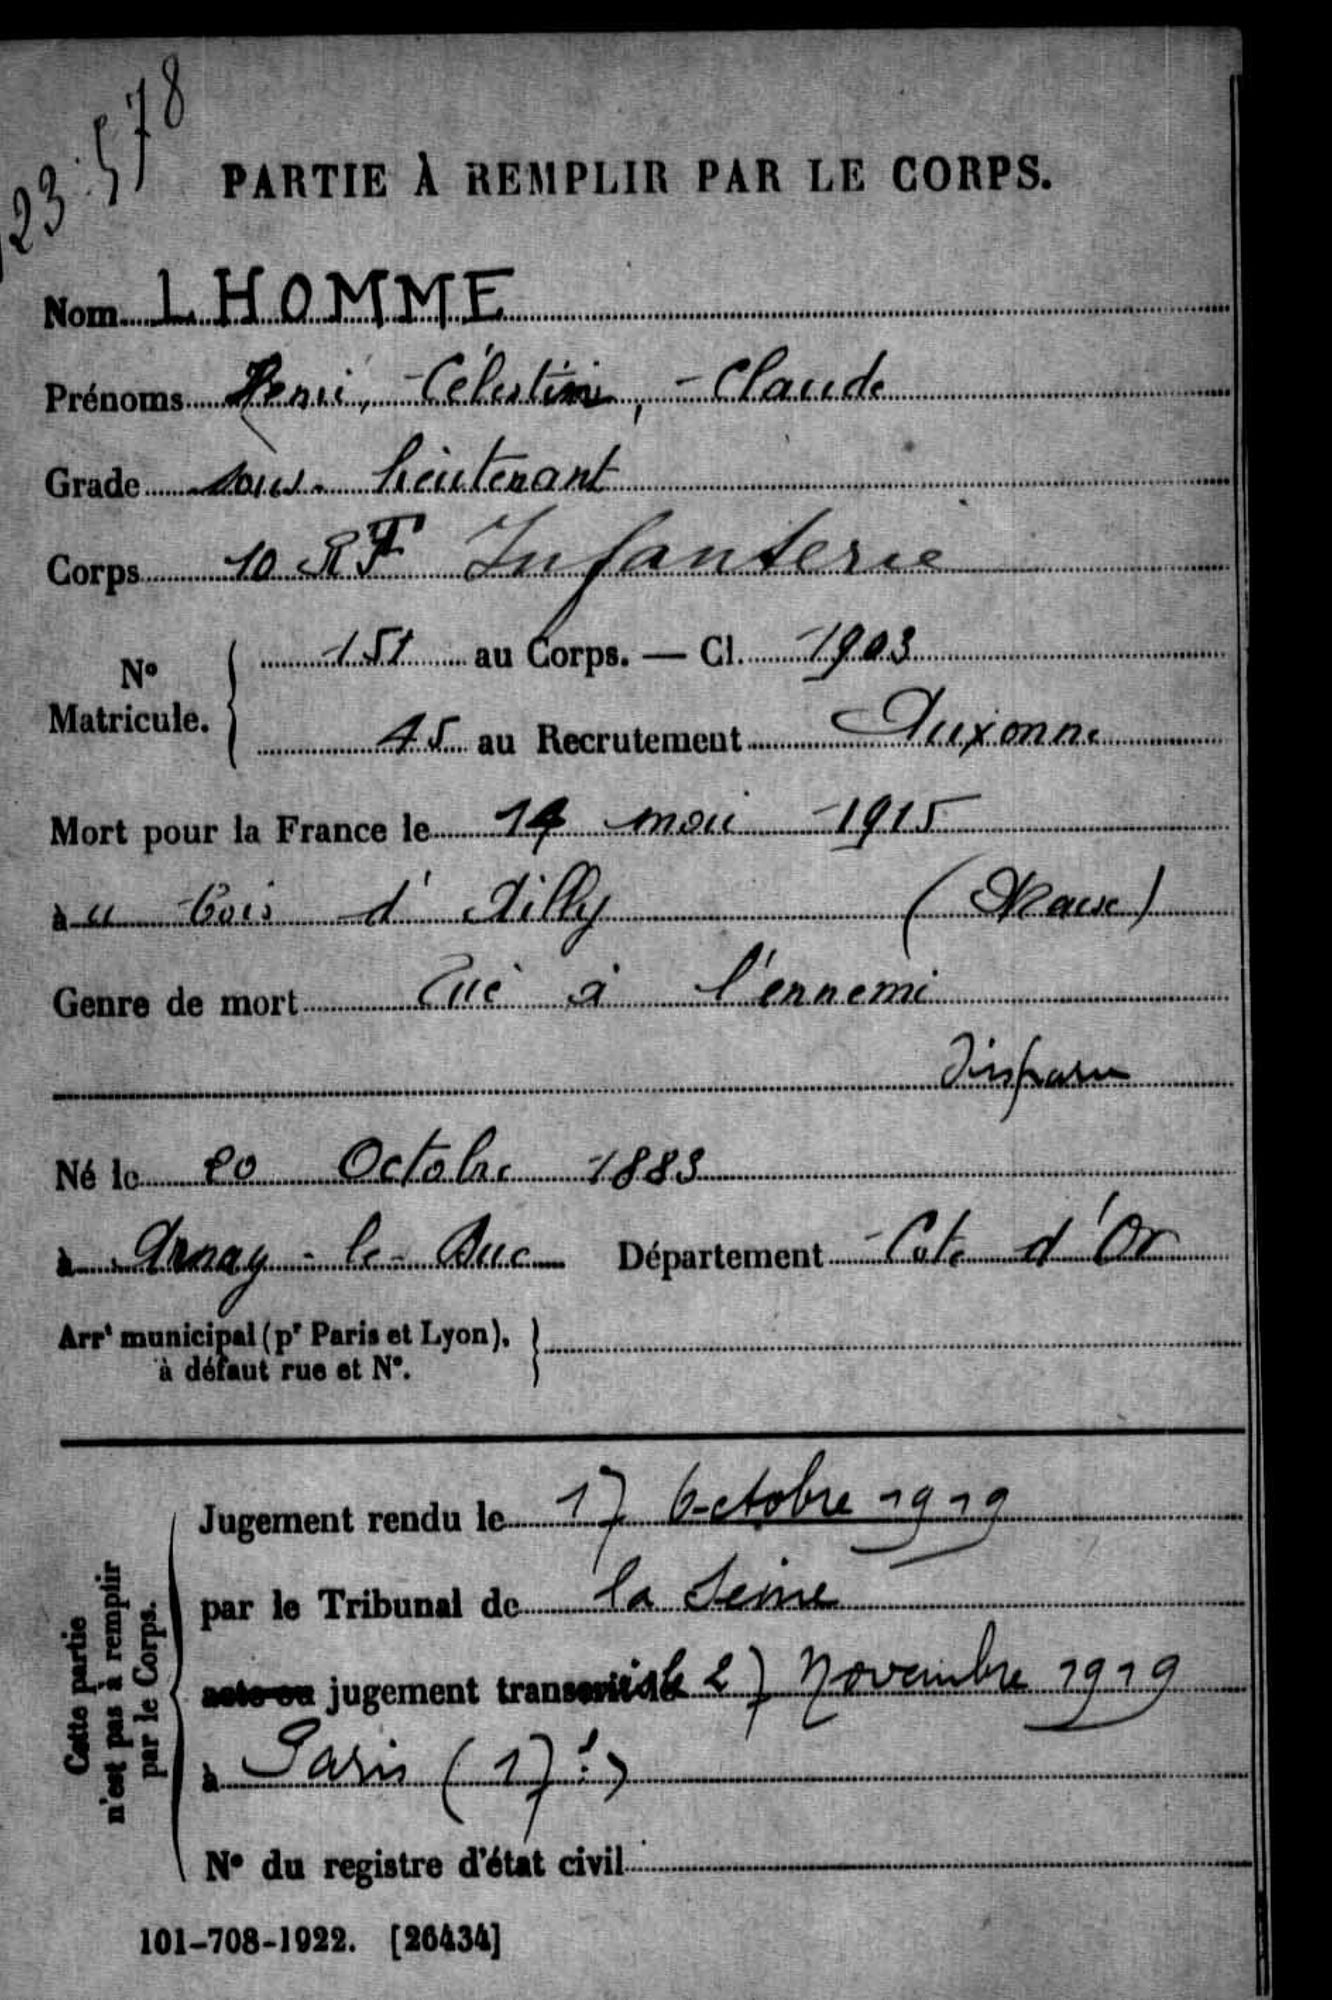 23.578
PARTIE À REMPLIR PAR LE CORPS.
Nom LHOMME
Prénoms Henri, - Célestin, - Claude
Grade sous-lieutenant
Corps 10 RF Infanterie
N° Matricule. 151 au Corps. — Cl. 1903
45 au Recrutement Auxonne
Mort pour la France le 14 mai 1915
à u bois d'Ailly (Meuse)
Genre de mort Tué à l'ennemi
Disparu
Né le 20 Octobre 1883
à Arnay-le-Duc Département Cote d'Or
Arrt municipal (pr Paris et Lyon),
à défaut rue et N°.
Cette partie
n'est pas à remplir
par le Corps.
Jugement rendu le 17 Octobre 1919
par le Tribunal de la Seine
acte ou jugement transcrit le 27 Novembre 1919
à Paris (17e)
N° du registre d'état civil
101-708-1922. [26434]